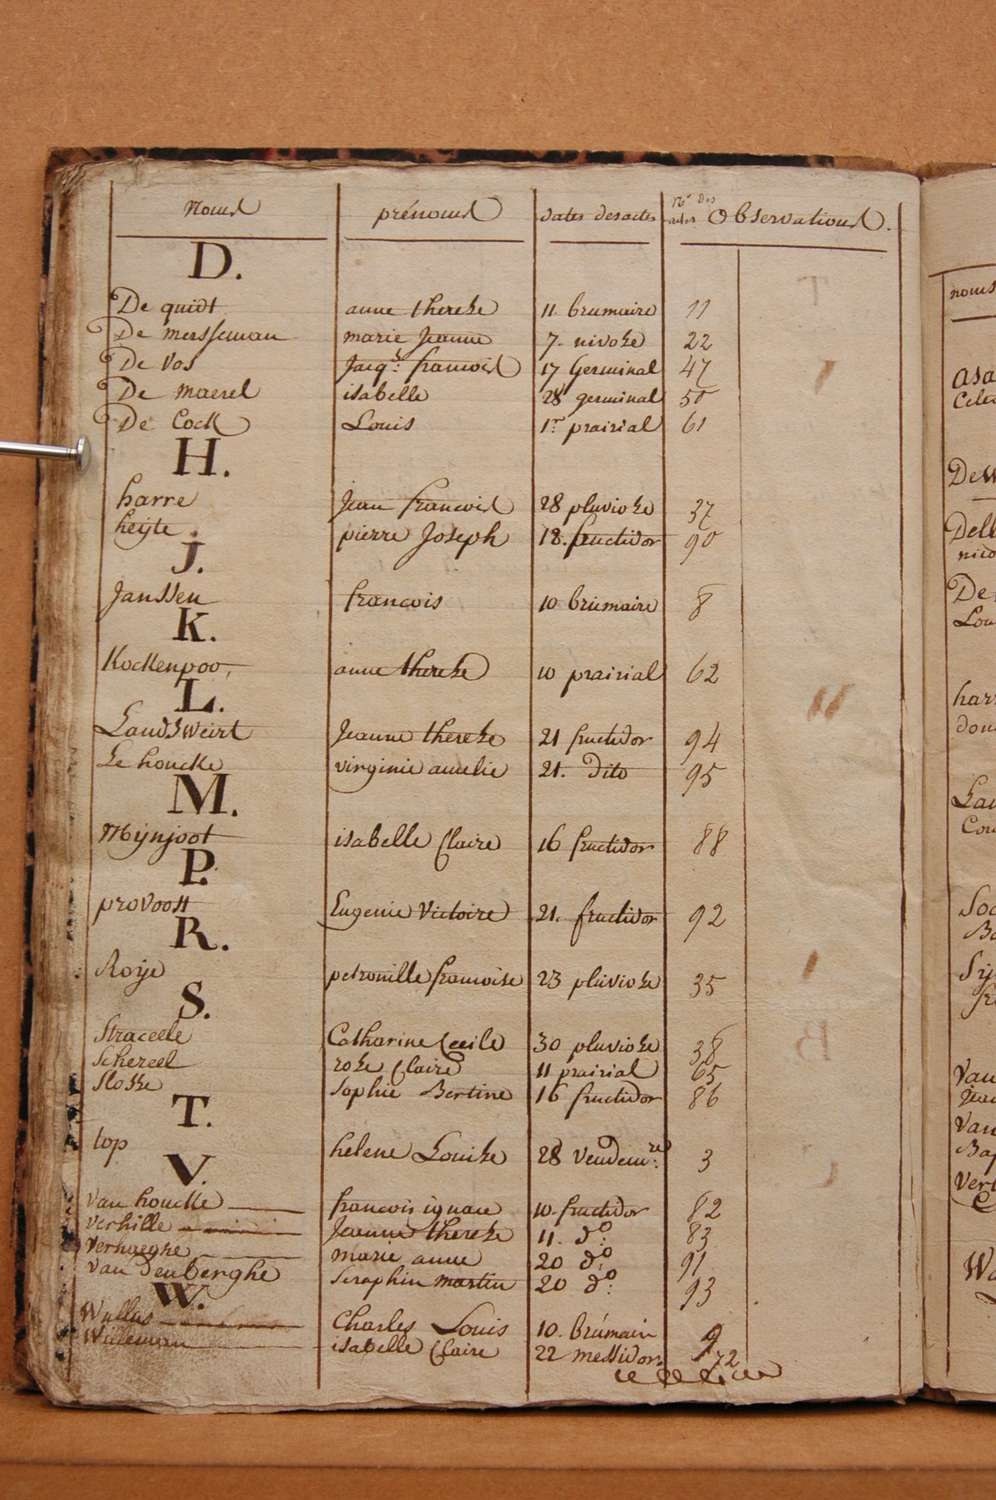 Noms prénoms dates des actes No. des actes Observations.
D.
De quidt anne therese 11 brumaire 11
De mersseman marie Jeanne 7. nivose 22
De Vos Jacq.s francois 17 Germinal 47
De maerel isabelle 28 germinal 50
De Cock Louis 1er prairial 61
H.
harre jean francois 28 pluviose 37
heyte pierre Joseph 18. fructidor 90
J.
Janssen francois 10 brumaire 8
K.
Kockenpoo, anne therese 10 prairial 62
L.
Landsweirt Jeanne therese 21 fructidor 94
Le houcke virginie amelie 21. dito 95
M.
Mijnjoot isabelle Claire 16 fructidor 88
P.
provoost Eugenie Victoire 21. fructidor 92
R.
Roije petronille francoise 23 pluviose 35
S.
Straceele Catharine Cecile 30 pluviose 38
Schereel rose Claire 11 prairial 65
Slosse Sophie Bertine 16 fructidor 86
T.
top helene Louise 28 Vendem.re 3
V.
van houcke francois ignace 10. fructidor 82
verhille Jeanne therese 11. do. 83
verhaeghe marie anne 20 do. 91
van den berghe Seraphin martin 20 do. 93
W.
Wullus Charles Louis 10. brumair 9
Willeman isabelle Claire 22 messidor. 72
noms
Asa
DeW
Dell
nico
De
Lou
harr
don
Lau
Cou
Van
Van
Bap
Ver
Wa